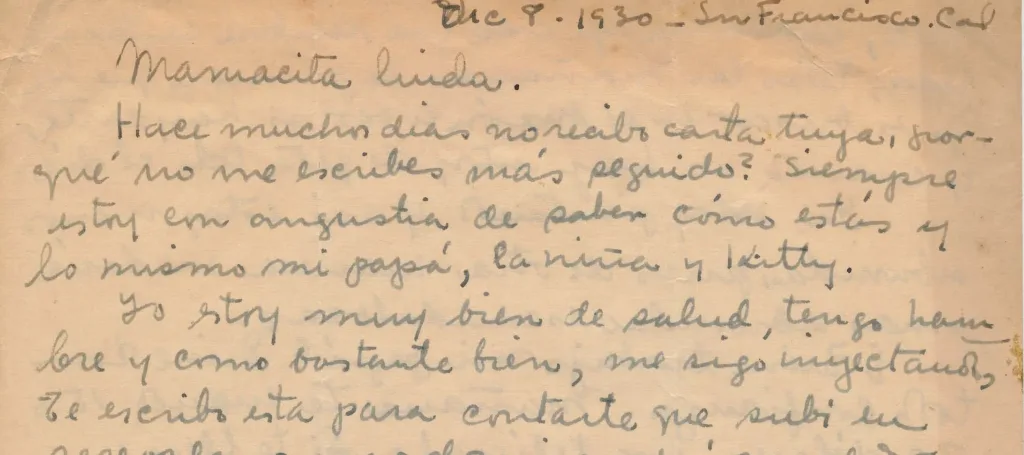 Dic 8. 1930 _ Sn Francisco. Cal
Mamacita linda.
Hace muchos dias no recibo carta tuya, por-
qué no me escribes más seguido? Siempre
estoy con angustia de saber cómo estás y
lo mismo mi papá, la niña y Kitty.
Yo estoy muy bien de salud, tengo ham
bre y como bastante bien, me sigo inyectando,
Te escribo esta para contarte que subi en